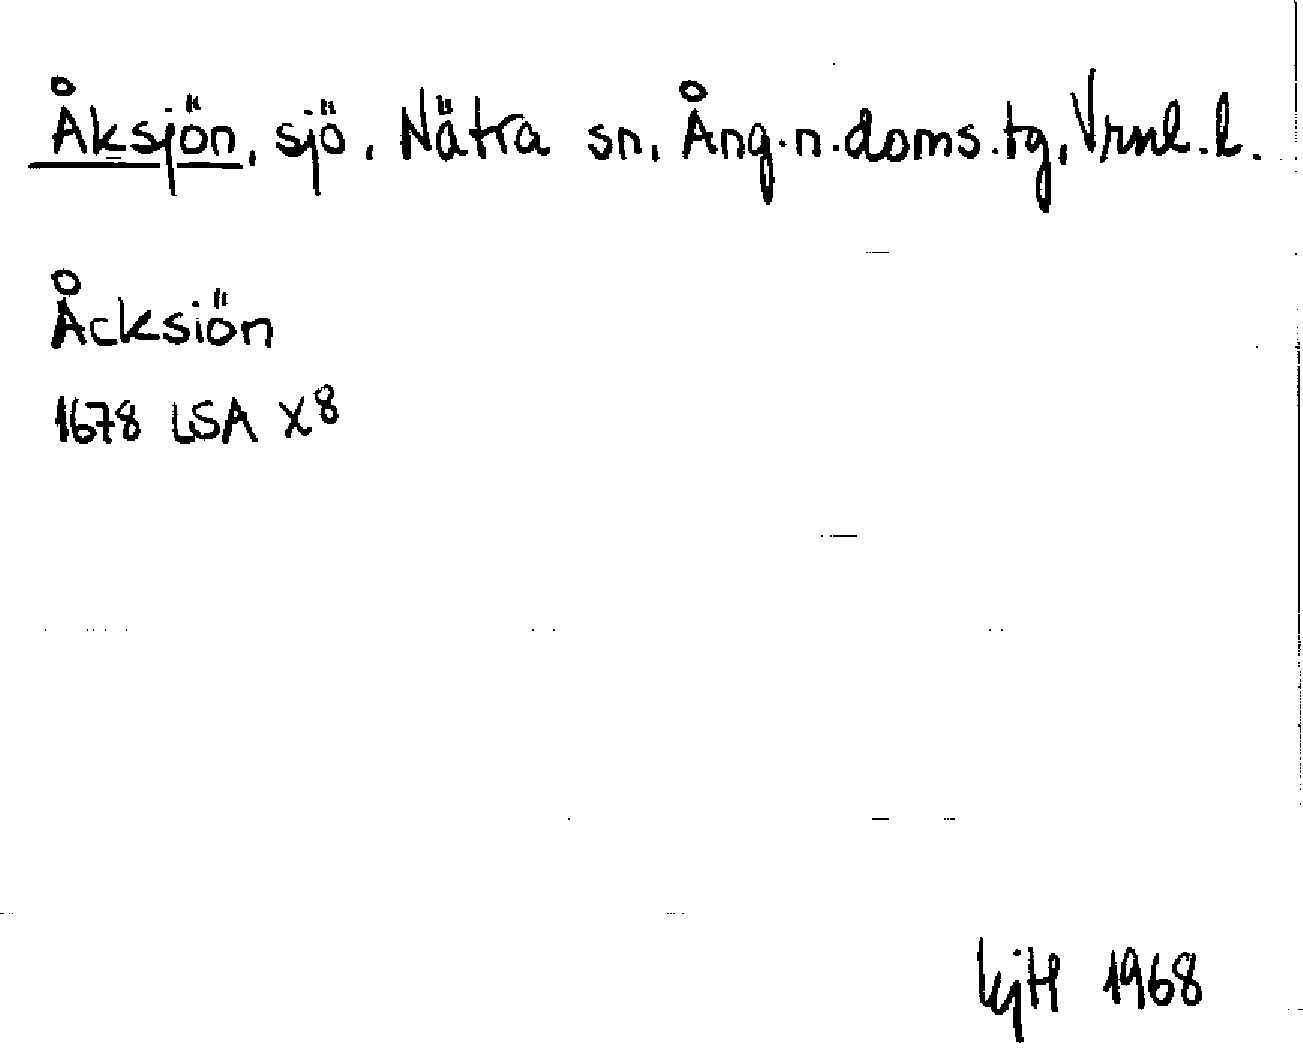 Åksjön, sjö, Nätra sn, Ång.n.doms.tg, Vrnl.l.
Åcksiön
1678 LSA X8
kjH 1968